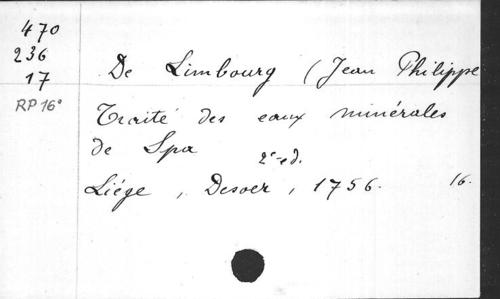 470
236
17
RP 16°
De Limbourg (Jean Philippe
Traité des eaux minérales
de Spa 2e ed.
Liége, Desoer, 1756. 16.